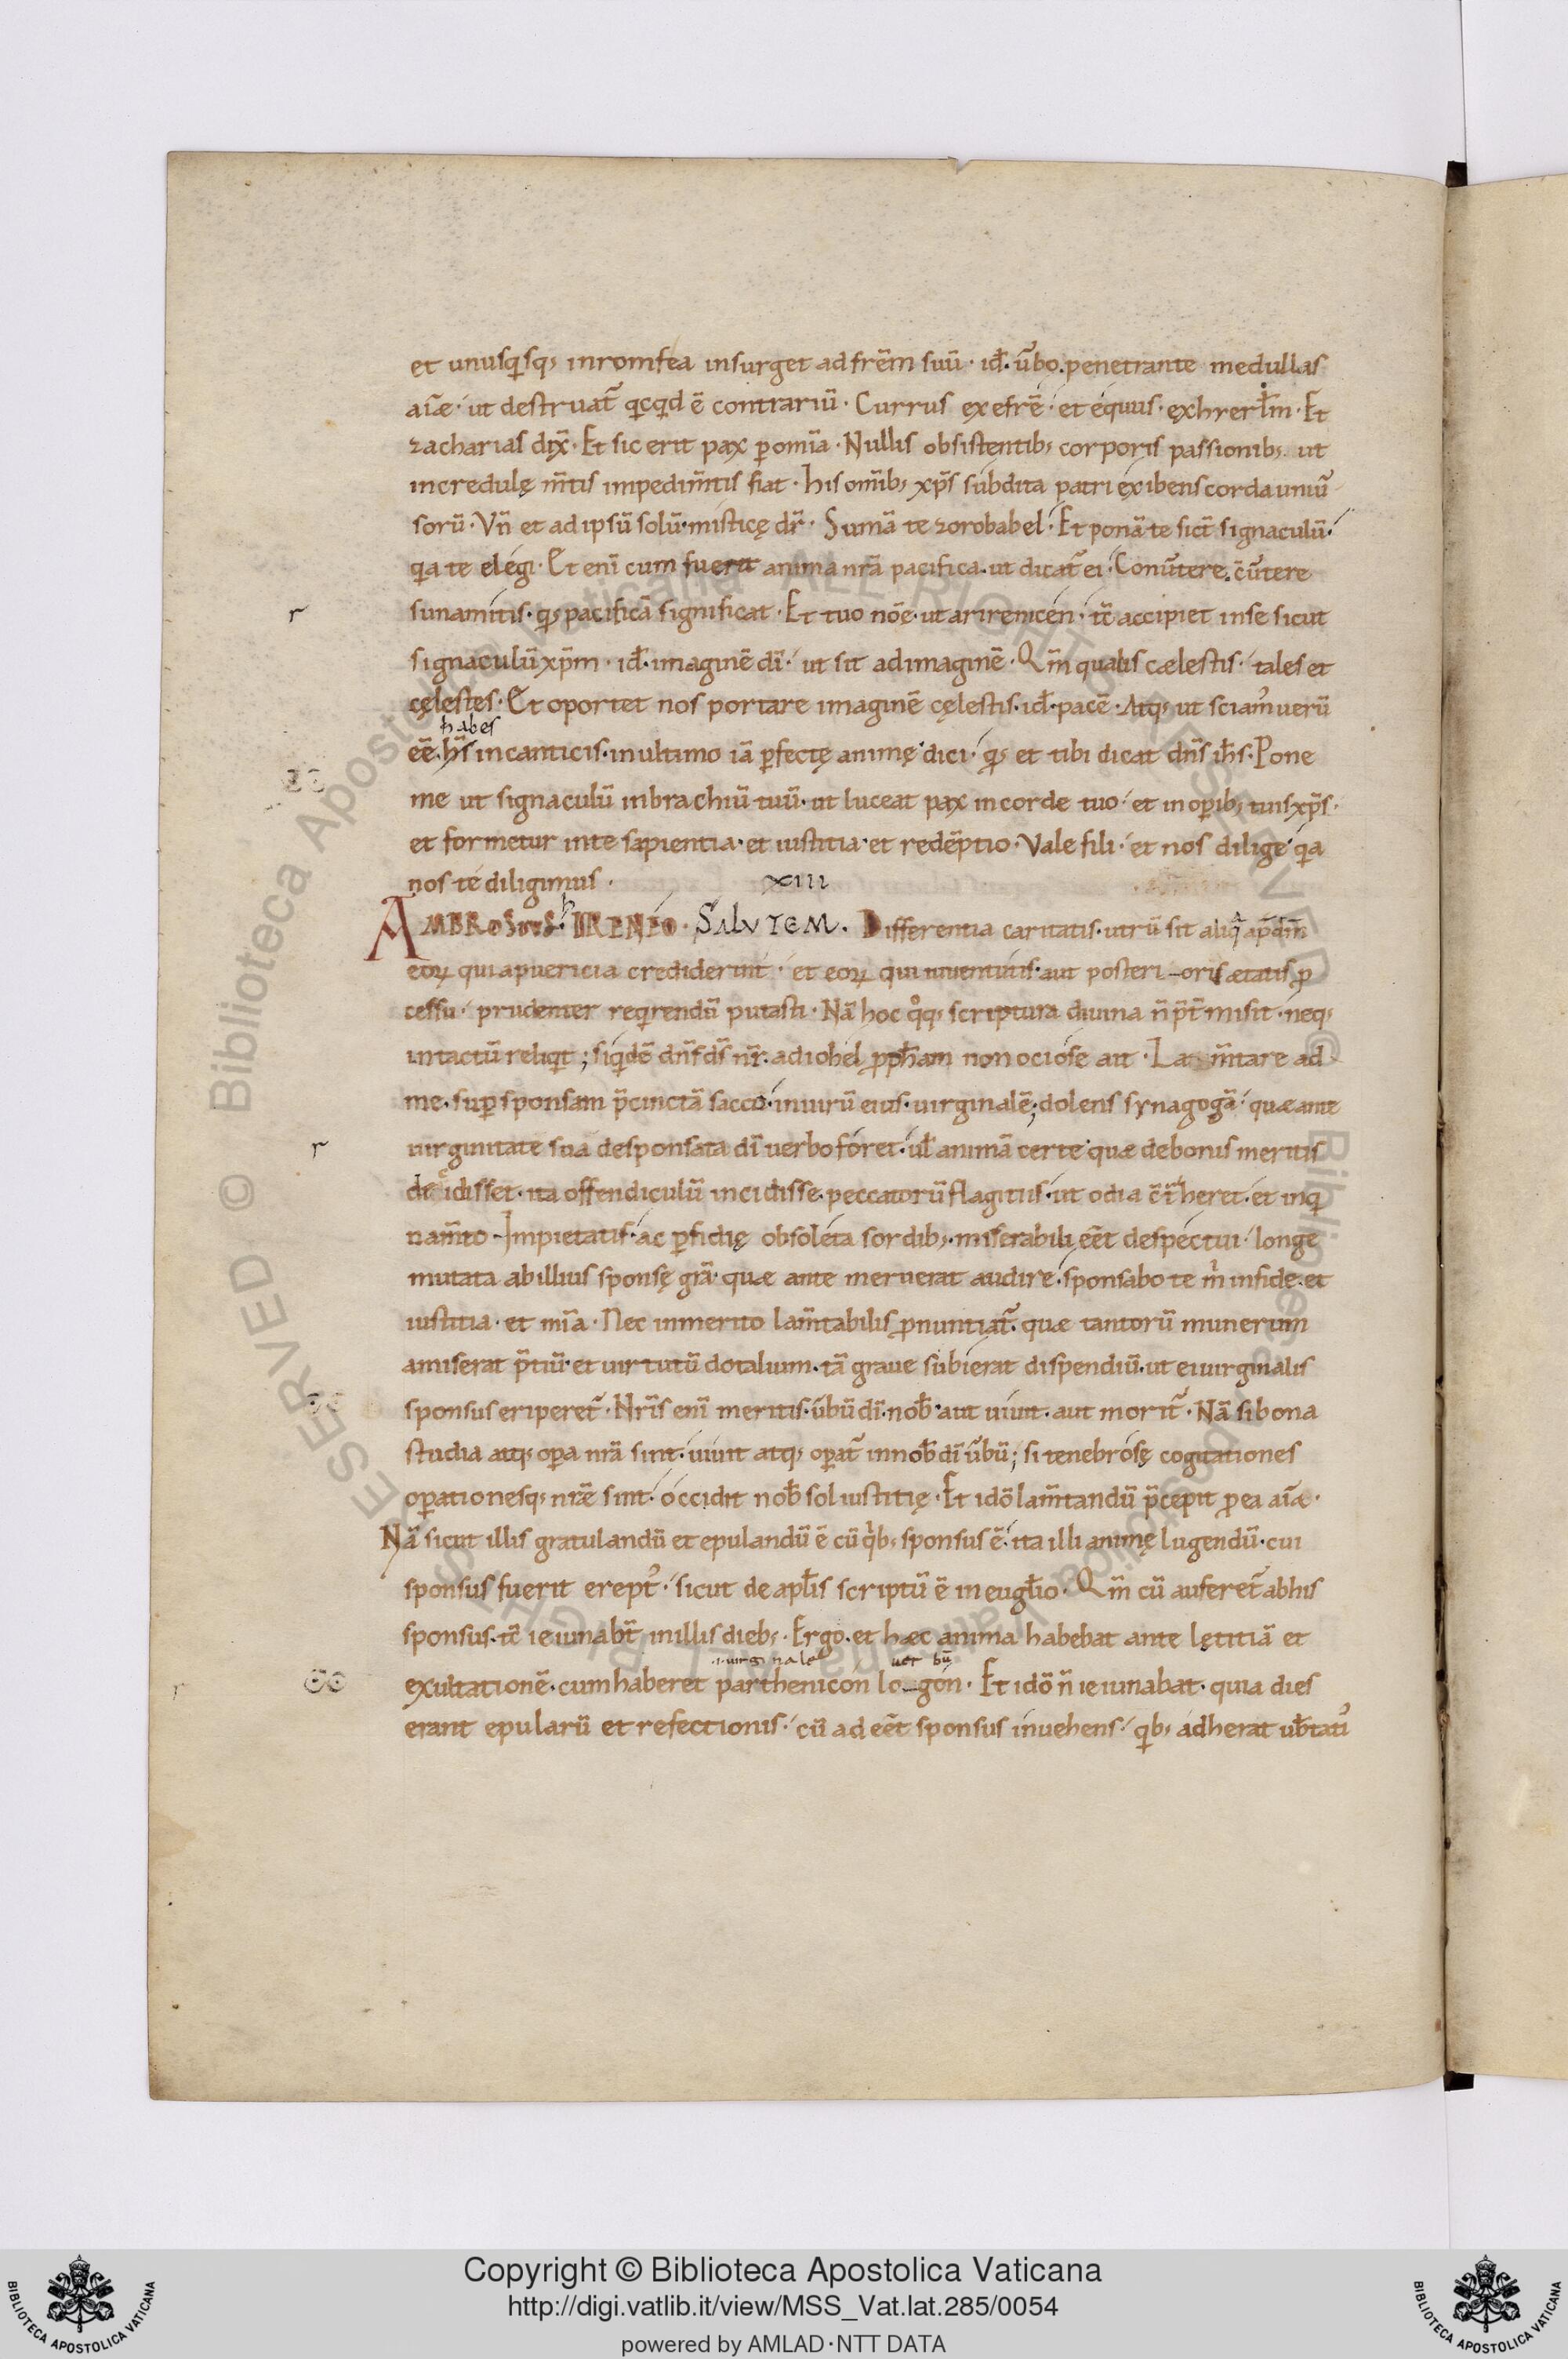 et unusq̇sq; inromfea insurget ad fr̄em suū · id ̄· ūbo. penetrante medullas
aīæ · ut destruat̄ qcqd ē contrariū · Currus ex efrē · et equus · exhrerl̄m · Et
zacharias dix̄ · Et sic erit pax p̄ omīa · Nullis obsistentib; corporis passionib; ut
incredulę m̄tis impedim̄tis fiat · his om̄ib; xp̄s subdita patri exibens corda uniū
sorū · Vn̄ et ad ipsū solū · misticę dr̄ · Sumā te zorobabel · Et ponā te sict̄ signaculū ·
qa te elegi · Et enī cum fuerit anima nr̄a pacifica · ut dicat̄ ei · Conūtere · c̄ūtere
sunamitis · q; pacificā significat · Et tuo nōe · ut arirenicen · tc̄ accipiet inse sicut
signaculū xp̄m · id ̄· imaginē dī · ut sit ad imaginē · Qm̄ qualis cælestis · tales et
cęlestes · Et oportet nos portare imaginē cęlestis · id ̄· pacē · Atq; ut sciam᾽ uerū
habes
eē · hs̄ in canticis · in ultimo iā p̄fectę animę dici · q; et tibi dicat dn̄s ih̄s · Pone
me ut signaculū in brachiū tuū · ut luceat pax in corde tuo · et in op̄ib; tuis xp̄s ·
et formetur inte sapientia · et iustitia · et redēptio · Vale fili · et nos dilige qa
nos te diligimus ·
XIII
AMBROSIUS · hIRENEO · SALVTEM . Differentia caritatis · utrū sit aliq̄a ap̄ dm̄
eoꝝ qui apuericia crediderint · et eoꝝ qui iuuentutis · aut posteri-oris ætatis p̄
cessu · prudenter reqrendū putasti · Nā hoc qoq; scriptura diuina n̄ p̄t̄misit · neq;
intactū reliqt ; siqdē dn̄s ds̄ nr̄ · ad iohel p̄ph̄am non ociose ait · La m̄tare ad
me · sup̄ sponsam p̄cinctā sacco · in uirū eius · uirginalē ; dolens synagogā · quæ ante
uirginitate sua desponsata dī uerbo foret · ul̄ animā certe quæ debonis meritis
decidisset · ita offendiculū incidisse · peccatorū flagitiis · ut odia c̄t̄heret · et inq
nam̄to Impietatis · ac p̄fidię obsoleta sordib; · miserabili eēt despectui · longe
mutata ab illius sponsę grā · quæ ante meruerat audire · sponsabo te m̄ in fide · et
iustitia · et mīa · Nec inmerito lam̄tabilis p̄nuntiat̄ · quæ tantorū munerum
amiserat p̄tiū · et uirtutū dotalium · tā graue subierat dispendiū · ut ei uirginalis
sponsus eriperet̄ · Nr̄is enī meritis · ūbū dī · nob̄ · aut uiuit · aut morit̄ · Nā si bona
studia atq; op̄a nr̄a sint · uiuit atq; op̄at̄ in nob̄ dī ūbū ; si tenebrosę cogitationes
op̄ationesq; nr̄e sint · occidit nob̄ sol iustitię · Et idō lam̄tandū p̄cepit p̄ ea aīæ ·
Nā sicut illis gratulandū et epulandū ē cū qb; sponsus ē · ita illi animę lugendū · cui
sponsus fuerit erept᾽ · sicut de apl̄is scriptū ē in eugl̄io · Qm̄ cū auferet̄ abhis
sponsus · tc̄ ieiunabt̄ in illis dieb; · Ergo · et hæc anima habebat ante lętitiā et
.i. uirginale uerbū
exultationē · cum haberet parthenicon lo-gon · Et idō n̄ ieiunabat · quia dies
erant epularū et refectionis · cū adeēt sponsus inuehens · qb; adherat ub̄tati᾽
r
r
r
Copyright © Biblioteca Apostolica Vaticana
http://digi.vatlib.it/view/MSS_Vat.lat.285/0054
powered by AMLAD·NTT DATA
BIBLIOTECA APOSTOLICA VATICANA
BIBLIOTECA APOSTOLICA VATICANA